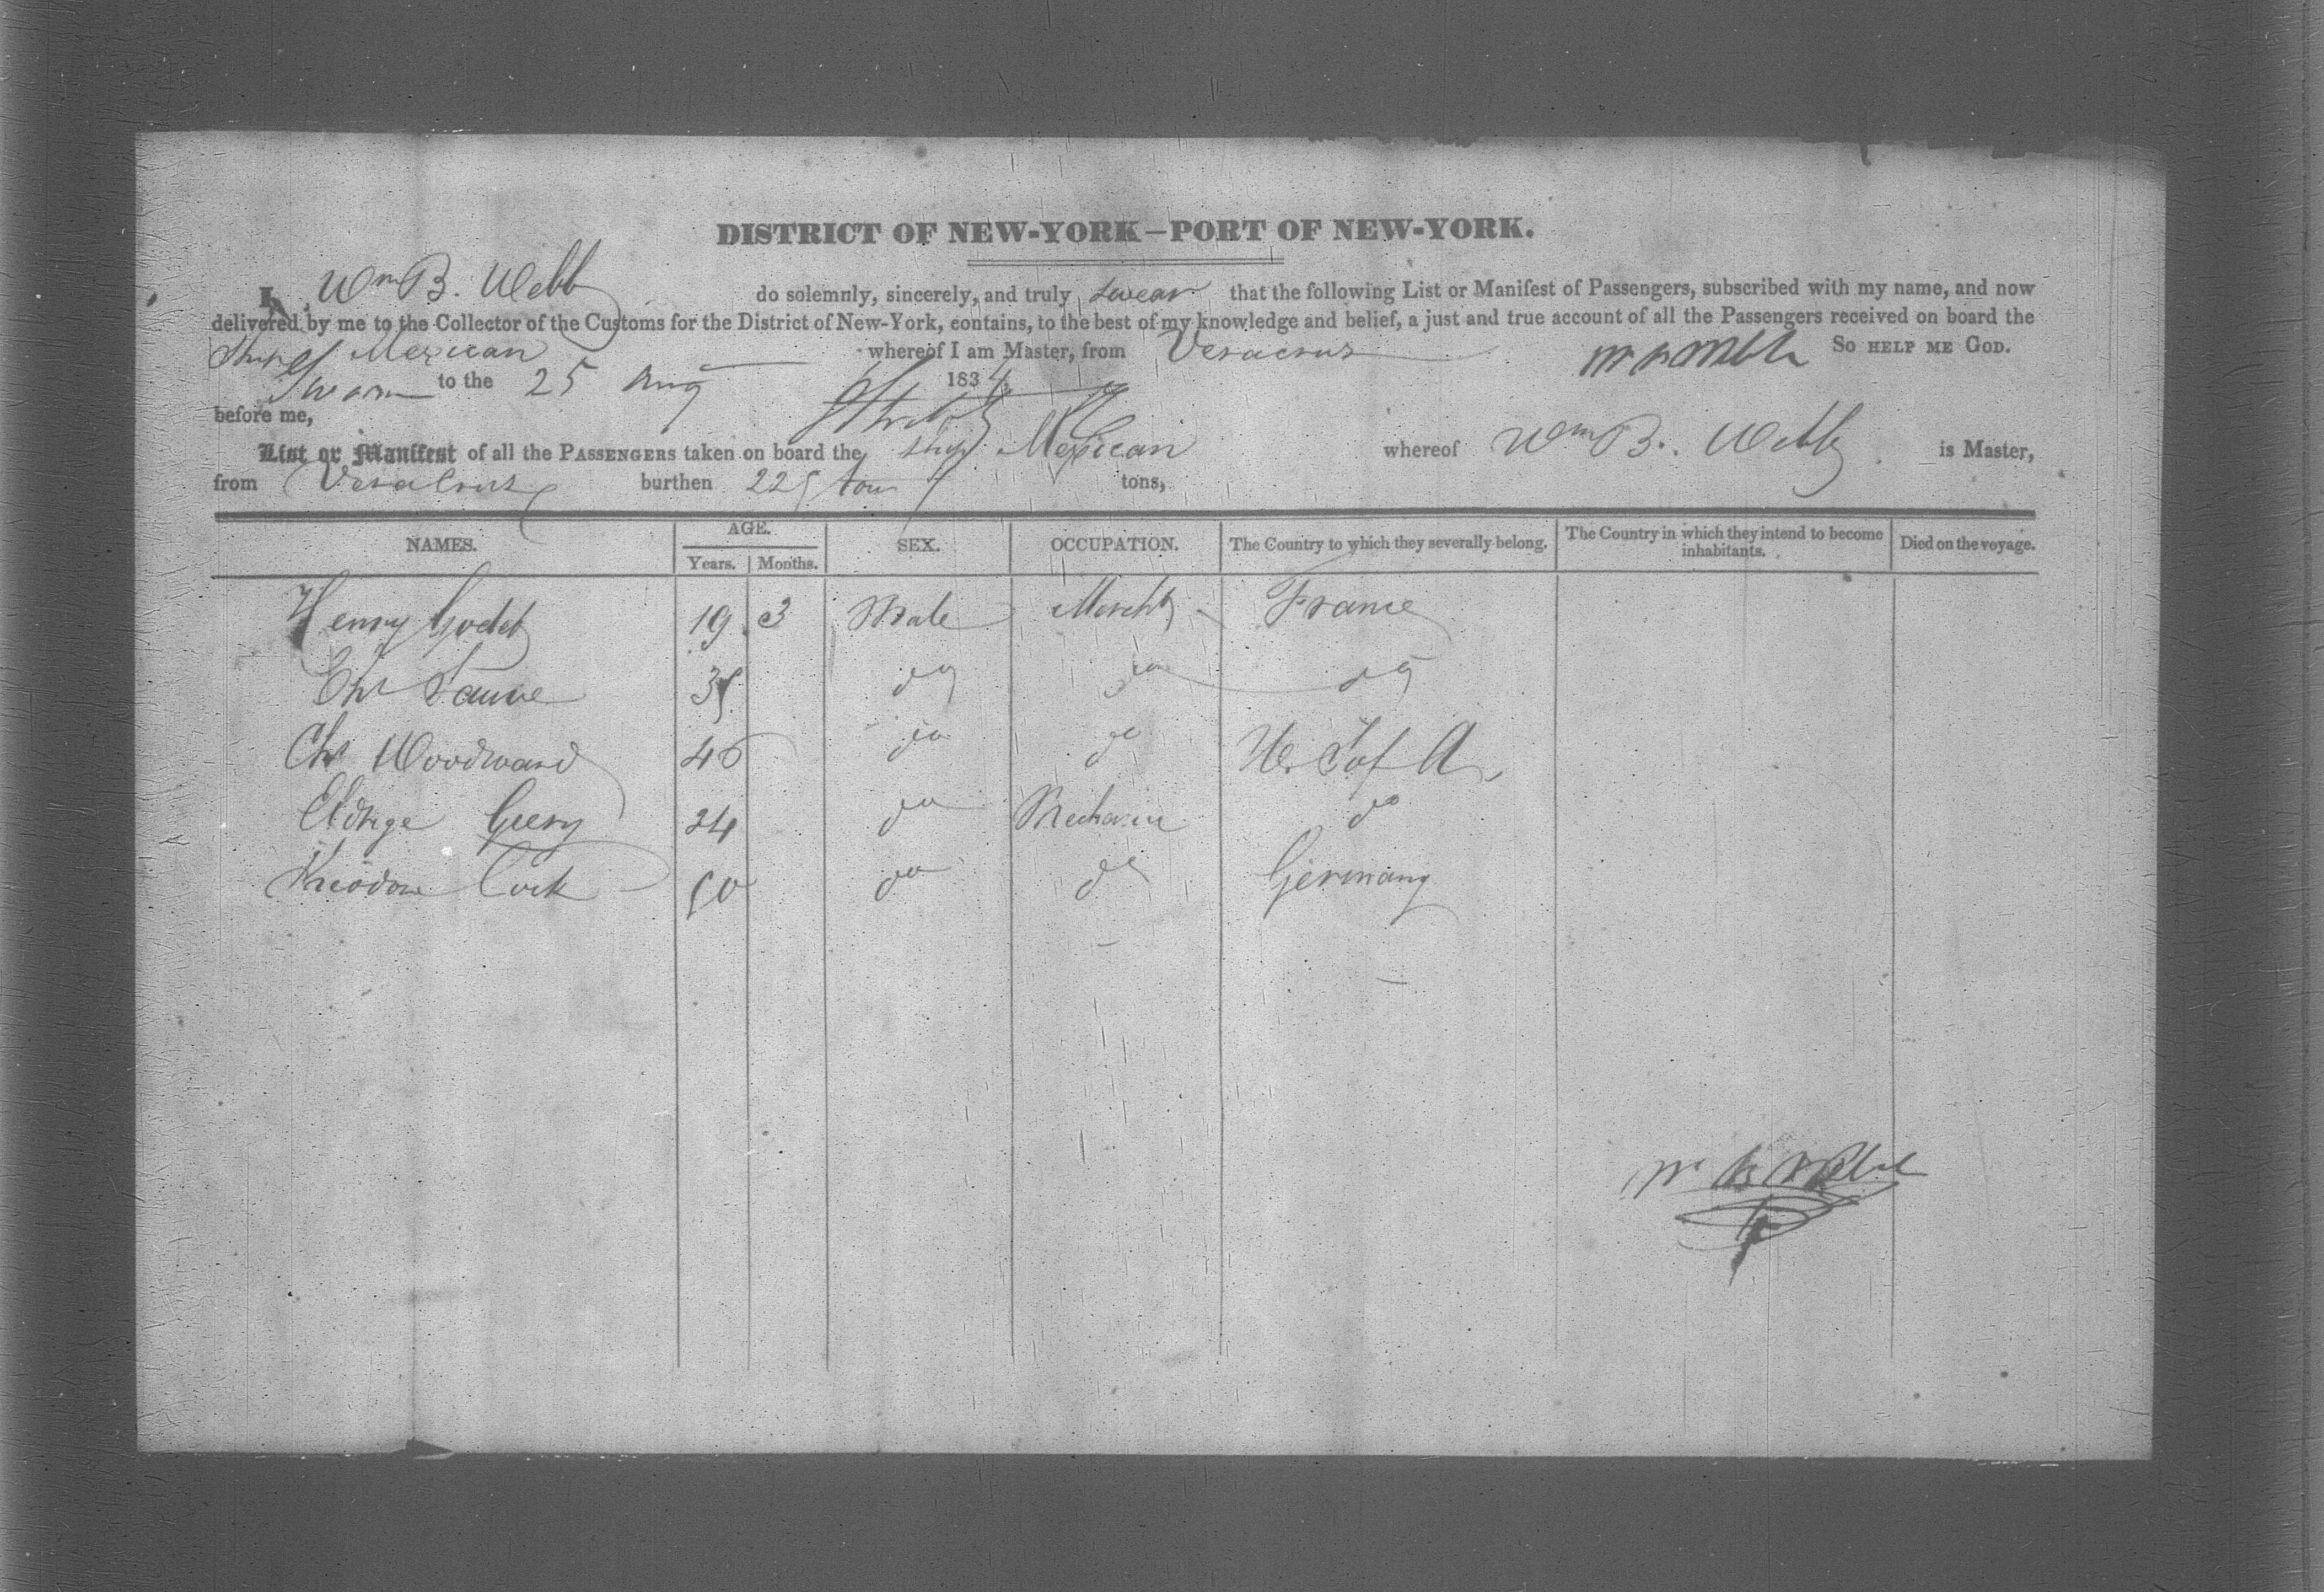 DISTRICT OF NEW-YORK—PORT OF NEW-YORK.
I, Wm B. Webb do solemnly, sincerely, and truly swear that the following List or Manifest of Passengers, subscribed with my name, and now
delivered by me to the Collector of the Customs for the District of New-York, contains, to the best of my knowledge and belief, a just and true account of all the Passengers received on board the
Ship Mexican whereof I am Master, from Veracruz So HELP ME GOD.
Sworn to the 25 Aug 1834
before me,
List or Manifest of all the PASSENGERS taken on board the ship Mexican whereof Wm B. Webb is Master,
from VeraCruz burthen 225 tons tons,
NAMES. AGE. Years. Months. SEX. OCCUPATION. The Country to which they severally belong. The Country in which they intend to become inhabitants. Died on the voyage.
Henry Godet 19 3 Male Mercht France
Chs 35 do do do
Chs Woodward do do U. S of A
Gery 24 do Mechanic do
Theodore Cook 50 do do Germany
W B Webb